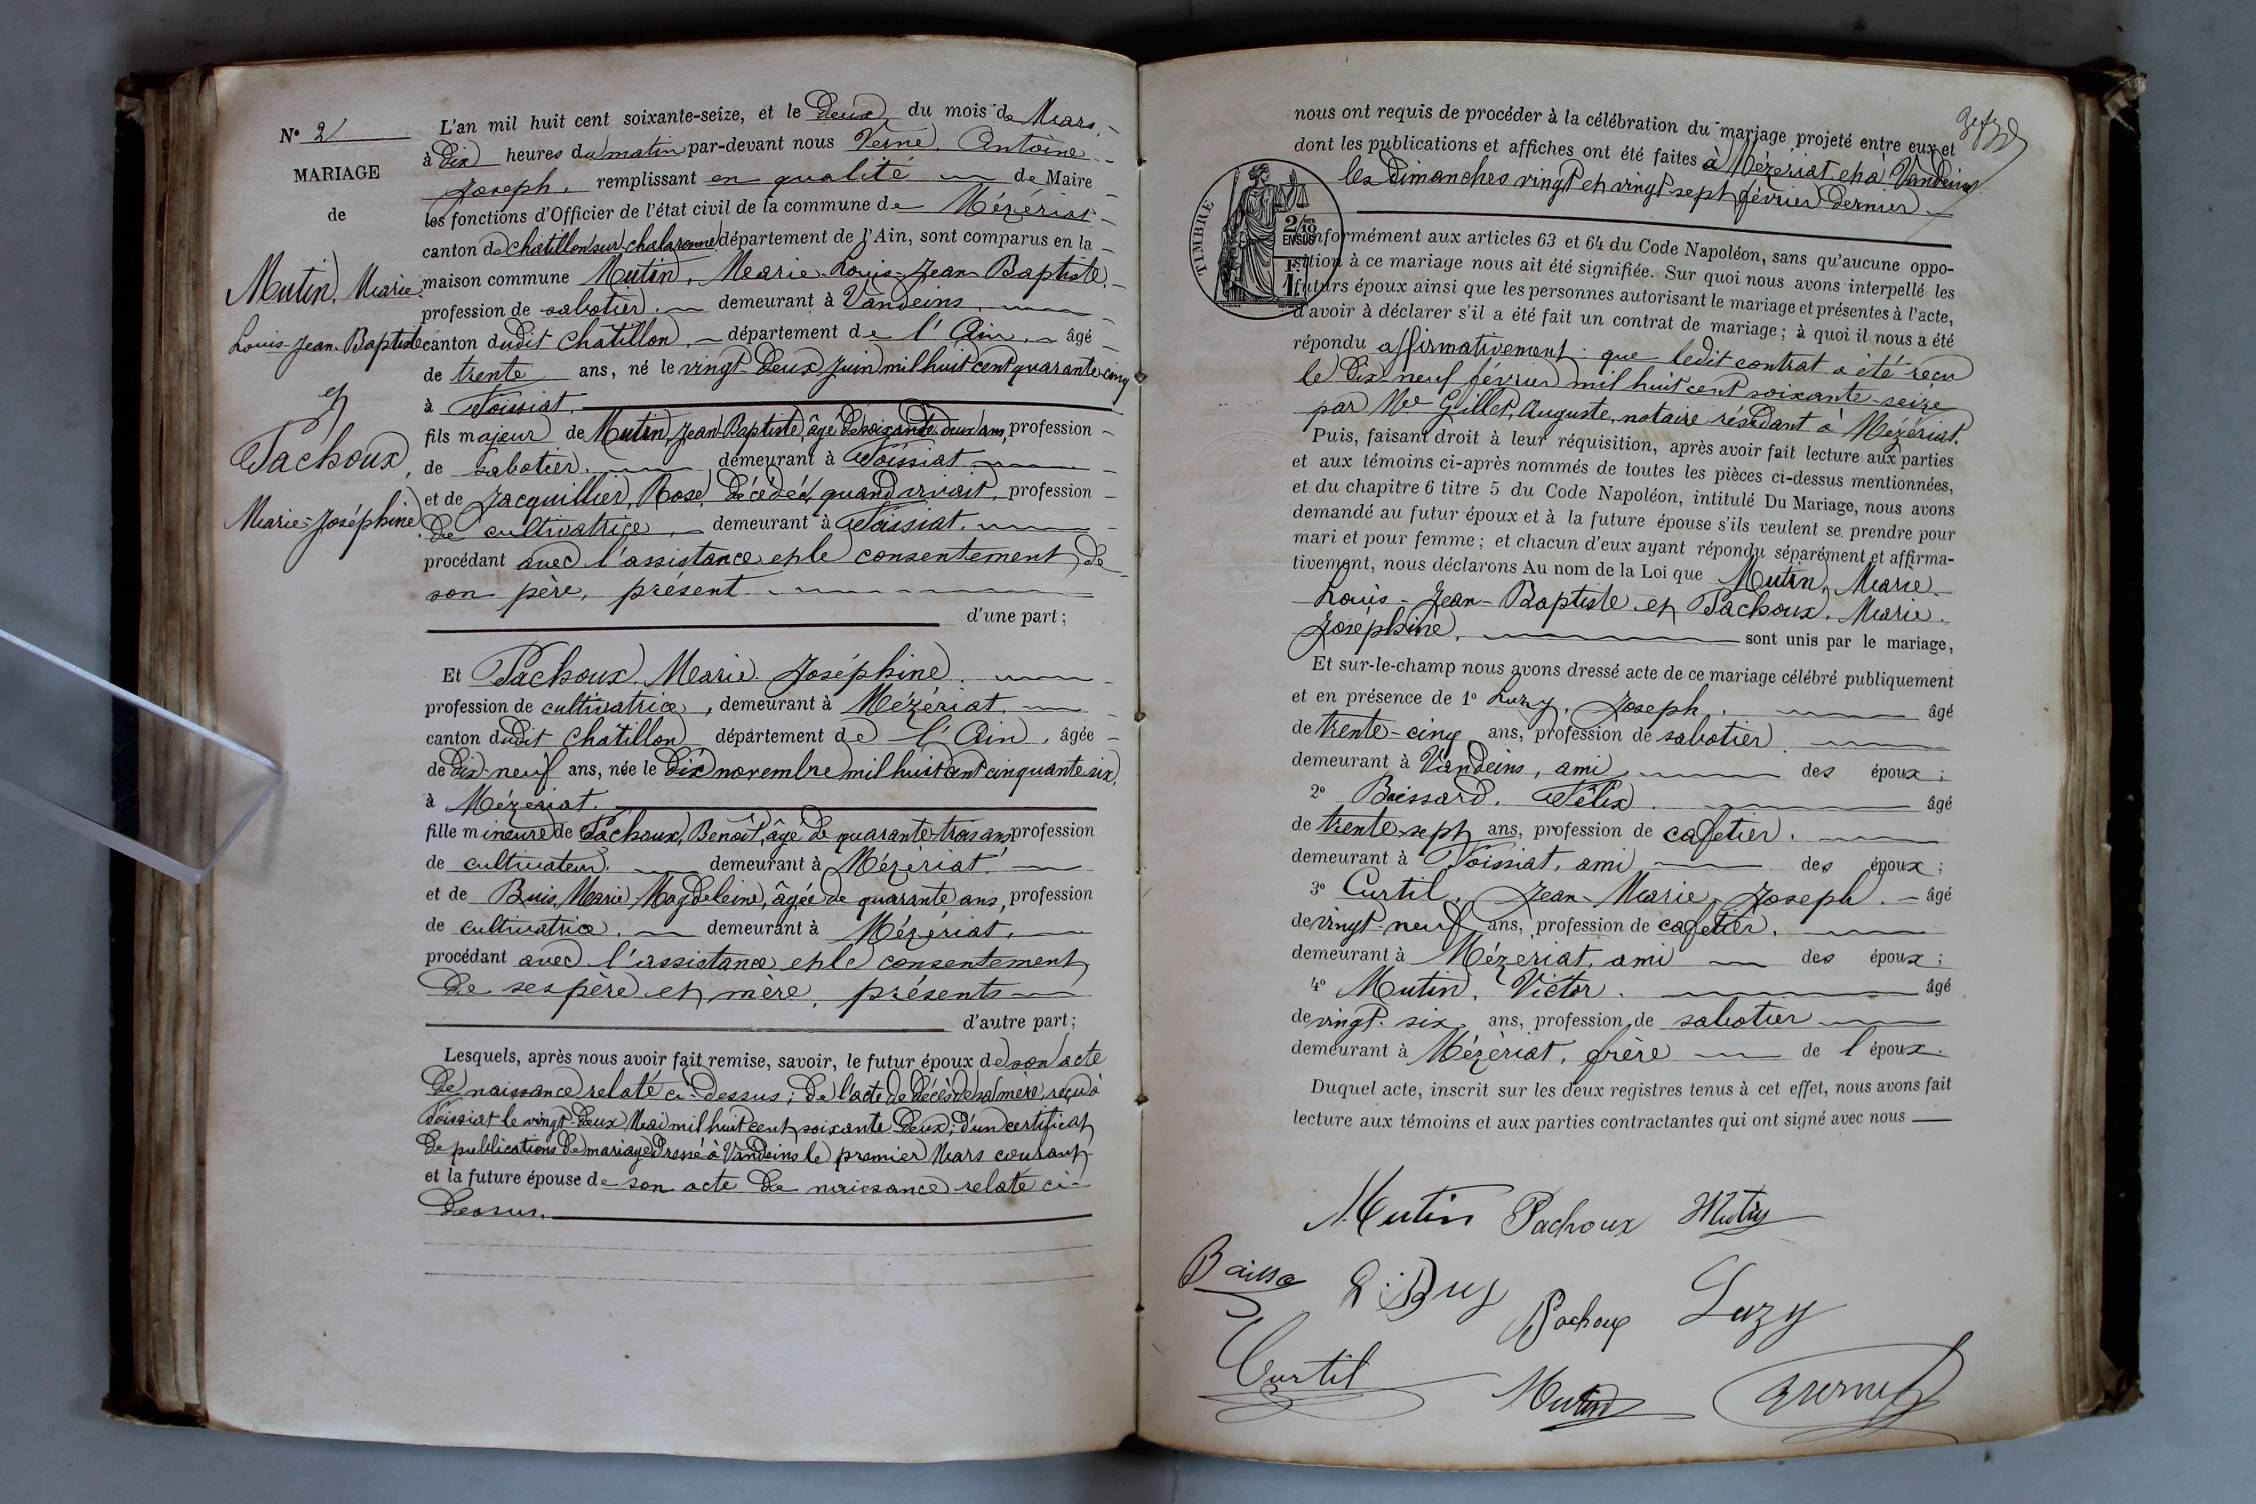 N° 2
MARIAGE
de
Mutin, Marie
Louis-Jean-Baptiste
et
Pachoux,
Marie-Joséphine.
L'an mil huit cent soixante-seize, et le deux du mois de Mars.
à dix heures du matin par-devant nous Verne, Antoine
Joseph, remplissant en qualité de Maire
les fonctions d'Officier de l'état civil de la commune de Mézériat
canton de chatillon sur chalaronne département de l'Ain, sont comparus en la
maison commune Mutin, Marie-Louis-Jean-Baptiste,
profession de sabotier demeurant à Vandeins,
canton dudit Chatillon, département de l'Ain, âgé
de trente ans, né le vingt-deux Juin mil huit cent quarante-cinq
à Foissiat,
fils majeur de Mutin, Jean-Baptiste, âgé de soixante-deux ans, profession
de sabotier, demeurant à Foissiat
et de Jacquillier, Rose, décédée, quand vivait, profession
de cultivatrice, demeurant à Foissiat,
procédant avec l'assistance et le consentement de
son père, présent
d'une part;
Et Pachoux, Marie-Joséphine,
profession de cultivatrice, demeurant à Mézériat,
canton dudit Chatillon département de l'Ain, âgée
de dix-neuf ans, née le dix novembre mil huit cent cinquante six,
à Mézériat.
fille mineure de Pachoux, Benoît, âgé de quarante-trois ans, profession
de cultivateur, demeurant à Mézériat,
et de Buis, Marie-Magdeleine, âgée de quarante ans, profession
de cultivatrice, demeurant à Mézériat,
procédant avec l'assistance et le consentement
de ses père et mère, présents
d'autre part;
Lesquels, après nous avoir fait remise, savoir, le futur époux de son acte
de naissance relaté ci-dessus; de l'acte de décès de sa mère, reçu à
Foissiat le vingt-deux Mai mil huit cent soixante-deux; d'un certificat
de publications de mariage dressé à Vandeins le premier Mars courant
et la future épouse de son acte de naissance relaté ci-
dessus.
nous ont requis de procéder à la célébration du mariage projeté entre eux et
dont les publications et affiches ont été faites à Mézériat et à Vandeins
les dimanches vingt et vingt-sept février dernier
TIMBRE
2/10
EN SUS
1 F.
Conformément aux articles 63 et 64 du Code Napoléon, sans qu'aucune oppo-
sition à ce mariage nous ait été signifiée. Sur quoi nous avons interpellé les
futurs époux ainsi que les personnes autorisant le mariage et présentes à l'acte,
d'avoir à déclarer s'il a été fait un contrat de mariage; à quoi il nous a été
répondu affirmativement: que ledit contrat a été reçu
le dix-neuf février mil huit cent soixante-seize
par Me Gillet, Auguste, notaire résidant à Mézériat.
Puis, faisant droit à leur réquisition, après avoir fait lecture aux parties
et aux témoins ci-après nommés de toutes les pièces ci-dessus mentionnées,
et du chapitre 6 titre 5 du Code Napoléon, intitulé Du Mariage, nous avons
demandé au futur époux et à la future épouse s'ils veulent se prendre pour
mari et pour femme; et chacun d'eux ayant répondu séparément et affirma-
tivement, nous déclarons Au nom de la Loi que Mutin, Marie-
Louis-Jean-Baptiste et Pachoux, Marie-
Joséphine, sont unis par le mariage,
Et sur-le-champ nous avons dressé acte de ce mariage célébré publiquement
et en présence de 1° Luzy, Joseph, âgé
de trente-cinq ans, profession de sabotier,
demeurant à Vandeins, ami des époux;
2° Baissard, Félix, âgé
de trente-sept ans, profession de cafetier,
demeurant à Foissiat, ami des époux;
3° Curtil, Jean-Marie-Joseph, âgé
de vingt-neuf ans, profession de cafetier,
demeurant à Mézériat, ami des époux;
4° Mutin, Victor, âgé
de vingt-six ans, profession de sabotier
demeurant à Mézériat, frère de l'époux.
Duquel acte, inscrit sur les deux registres tenus à cet effet, nous avons fait
lecture aux témoins et aux parties contractantes qui ont signé avec nous
Mutin Pachoux Mutin
Pachoux Luzy
Curtil Mutin